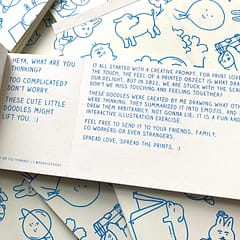 HEYA, WHAT ARE YOU
THINKING?
TOO COMPLICATED?
DON'T WORRY.
THESE CUTE LITTLE
DOODLES MIGHT
LIFT YOU. :)
IT ALL STARTED WITH A CREATIVE PROMPT. FOR PRINT LOVE
THE TOUCH, THE FEEL OF A PRINTED OBJECT IS WHAT
OUR DELIGHT. BUT IN 2021, WE ARE STUCK WITH THE SCR
DON'T WE MISS TOUCHING AND FEELING TOGETHER?
THESE DOODLES WERE CREATED BY ME DRAWING WHAT OTHE
WERE THINKING. THEY SUMMARIZED IT INTO EMOJIS, AND
DREW THEM ARBITRARILY. NOT GONNA LIE, IT IS A FUN AND
INTERACTIVE ILLUSTRATION EXERCISE.
FEEL FREE TO SEND IT TO YOUR FRIENDS, FAMILY,
CO-WORKERS OR EVEN STRANGERS.
SPREAD LOVE, SPREAD THE PRINTS. :)